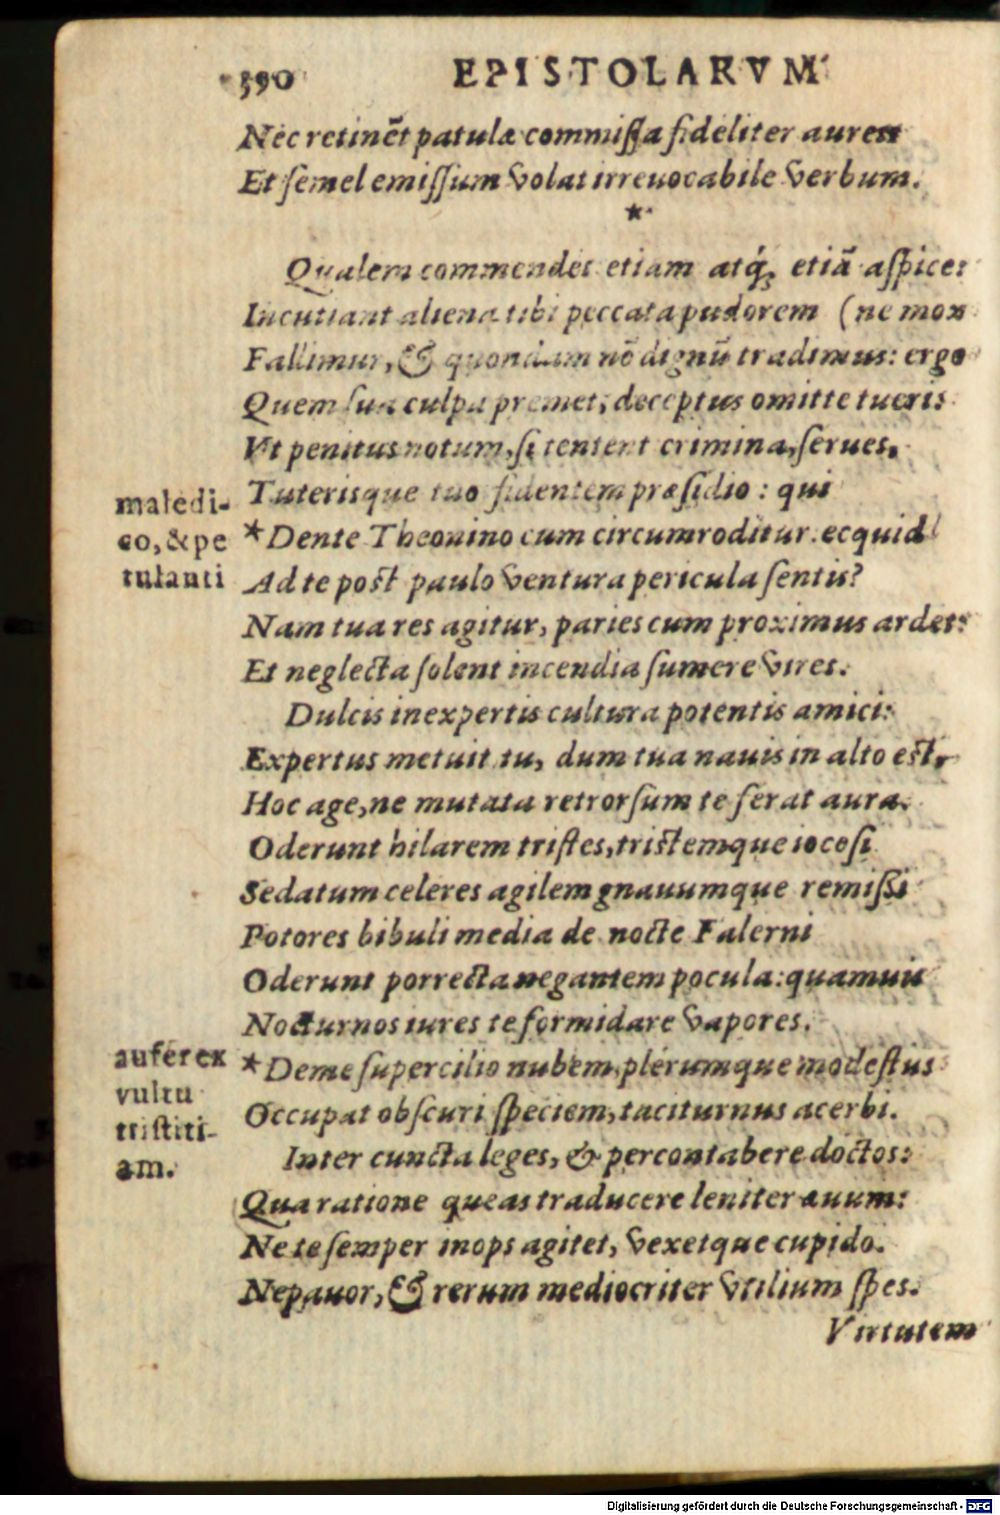 390 EPISTOLARVM
Nec retinẽt patulæ commissa fideliter aures
Et semel emissum volat irreuocabile verbum.
*
Qualem commendes etiam atq́; etiã aspice:
Incutiant aliena tibi peccata pudorem (ne mox
Fallimur, & quondam nõ dignũ tradimus: ergo
Quem sua culpa premet, deceptus omitte tueris
Vt penitus notum, si tentent crimina, serues,
Tuterisque tuo fidentem præsidio: qui
maledi-
co, & pe
tulanti
*Dente Theonino cum circumroditur. ecquid
Ad te post paulo ventura pericula sentis?
Nam tua res agitur, paries cum proximus ardet:
Et neglecta solent incendia sumere vires.
Dulcis inexpertis cultura potentis amici:
Expertus metuit. tu, dum tua nauis in alto est,
Hoc age, ne mutata retrorsum te ferat aura.
Oderunt hilarem tristes, tristemque iocosi
Sedatum celeres agilem gnauumque remissi
Potores bibuli media de nocte Falerni
Oderunt porrecta negantem pocula: quamuis
Nocturnos iures te formidare vapores.
aufer ex
vultu
tristiti-
am.
*Deme supercilio nubem, plerumque modestus
Occupat obscuri speciem, taciturnus acerbi.
Inter cuncta leges, & percontabere doctos:
Qua ratione queas traducere leniter æuum:
Ne te semper inops agitet, vexetque cupido.
Ne pauor, & rerum mediocriter vtilium spes.
Virtutem
Digitalisierung gefördert durch die Deutsche Forschungsgemeinschaft - DFG